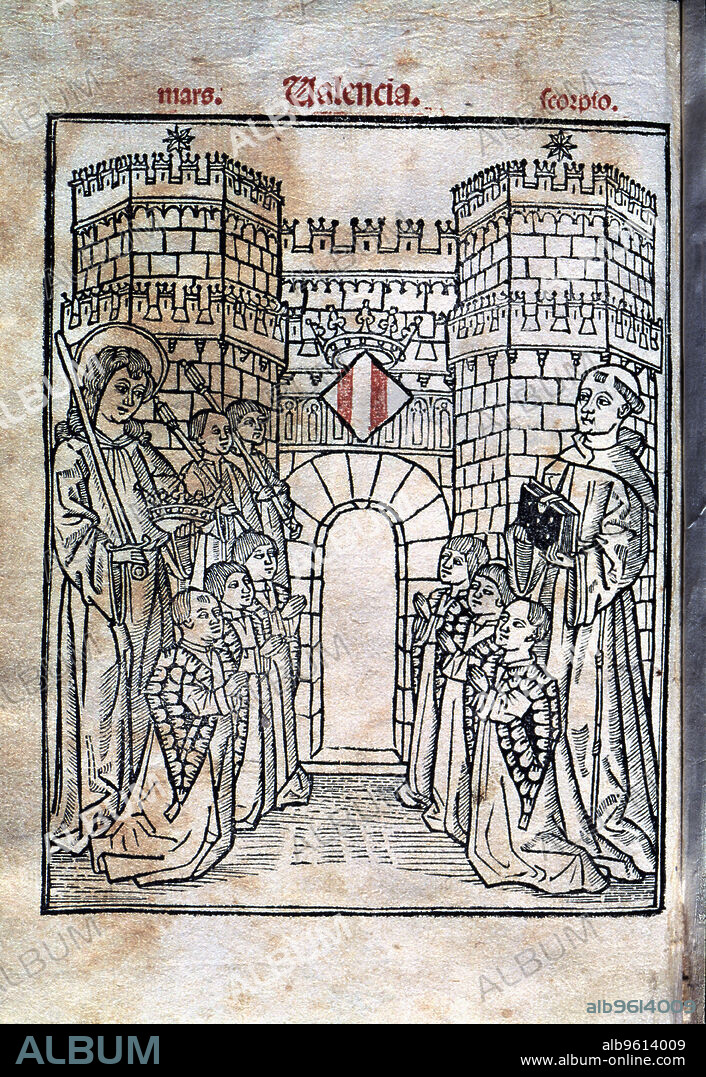 mars. Valencia. scorpio.
ALBUM
alb9614009
ALBUM
alb9614009
www.album-online.com